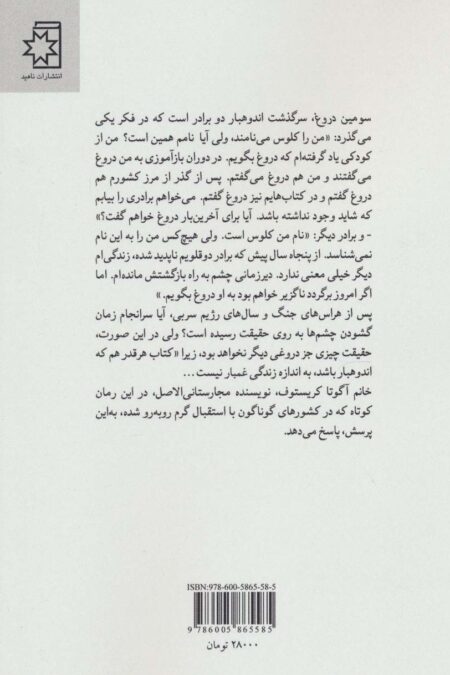 انتشارات ناهید
سومین دروغ، سرگذشت اندوهبار دو برادر است که در فکر یکی
می‌گذرد: «من را کلوس می‌نامند، ولی آیا نامم همین است؟ من از
کودکی یاد گرفته‌ام که دروغ بگویم. در دوران بازآموزی به من دروغ
می‌گفتند و من هم دروغ می‌گفتم. پس از گذر از مرز کشورم هم
دروغ گفتم و در کتاب‌هایم نیز دروغ گفتم. می‌خواهم برادری را بیابم
که شاید وجود نداشته باشد. آیا برای آخرین‌بار دروغ خواهم گفت؟»
- و برادر دیگر: «نام من کلوس است. ولی هیچ‌کس من را به این نام
نمی‌شناسد. از پنجاه سال پیش که برادر دوقلویم ناپدید شده، زندگی‌ام
دیگر خیلی معنی ندارد. دیرزمانی چشم به راه بازگشتش مانده‌ام. اما
اگر امروز برگردد ناگزیر خواهم بود به او دروغ بگویم.»
پس از هراس‌های جنگ و سال‌های رژیم سربی، آیا سرانجام زمان
گشودن چشم‌ها به روی حقیقت رسیده است؟ ولی در این صورت،
حقیقت چیزی جز دروغی دیگر نخواهد بود، زیرا «کتاب هرقدر هم که
اندوهبار باشد، به اندازه زندگی غمبار نیست...
خانم آگوتا کریستوف، نویسنده مجارستانی‌الاصل، در این رمان
کوتاه که در کشورهای گوناگون با استقبال گرم روبه‌رو شده، به‌این
پرسش، پاسخ می‌دهد.
ISBN:978-600-5865-58-5
9 786005 865585
۲۸۰۰۰ تومان